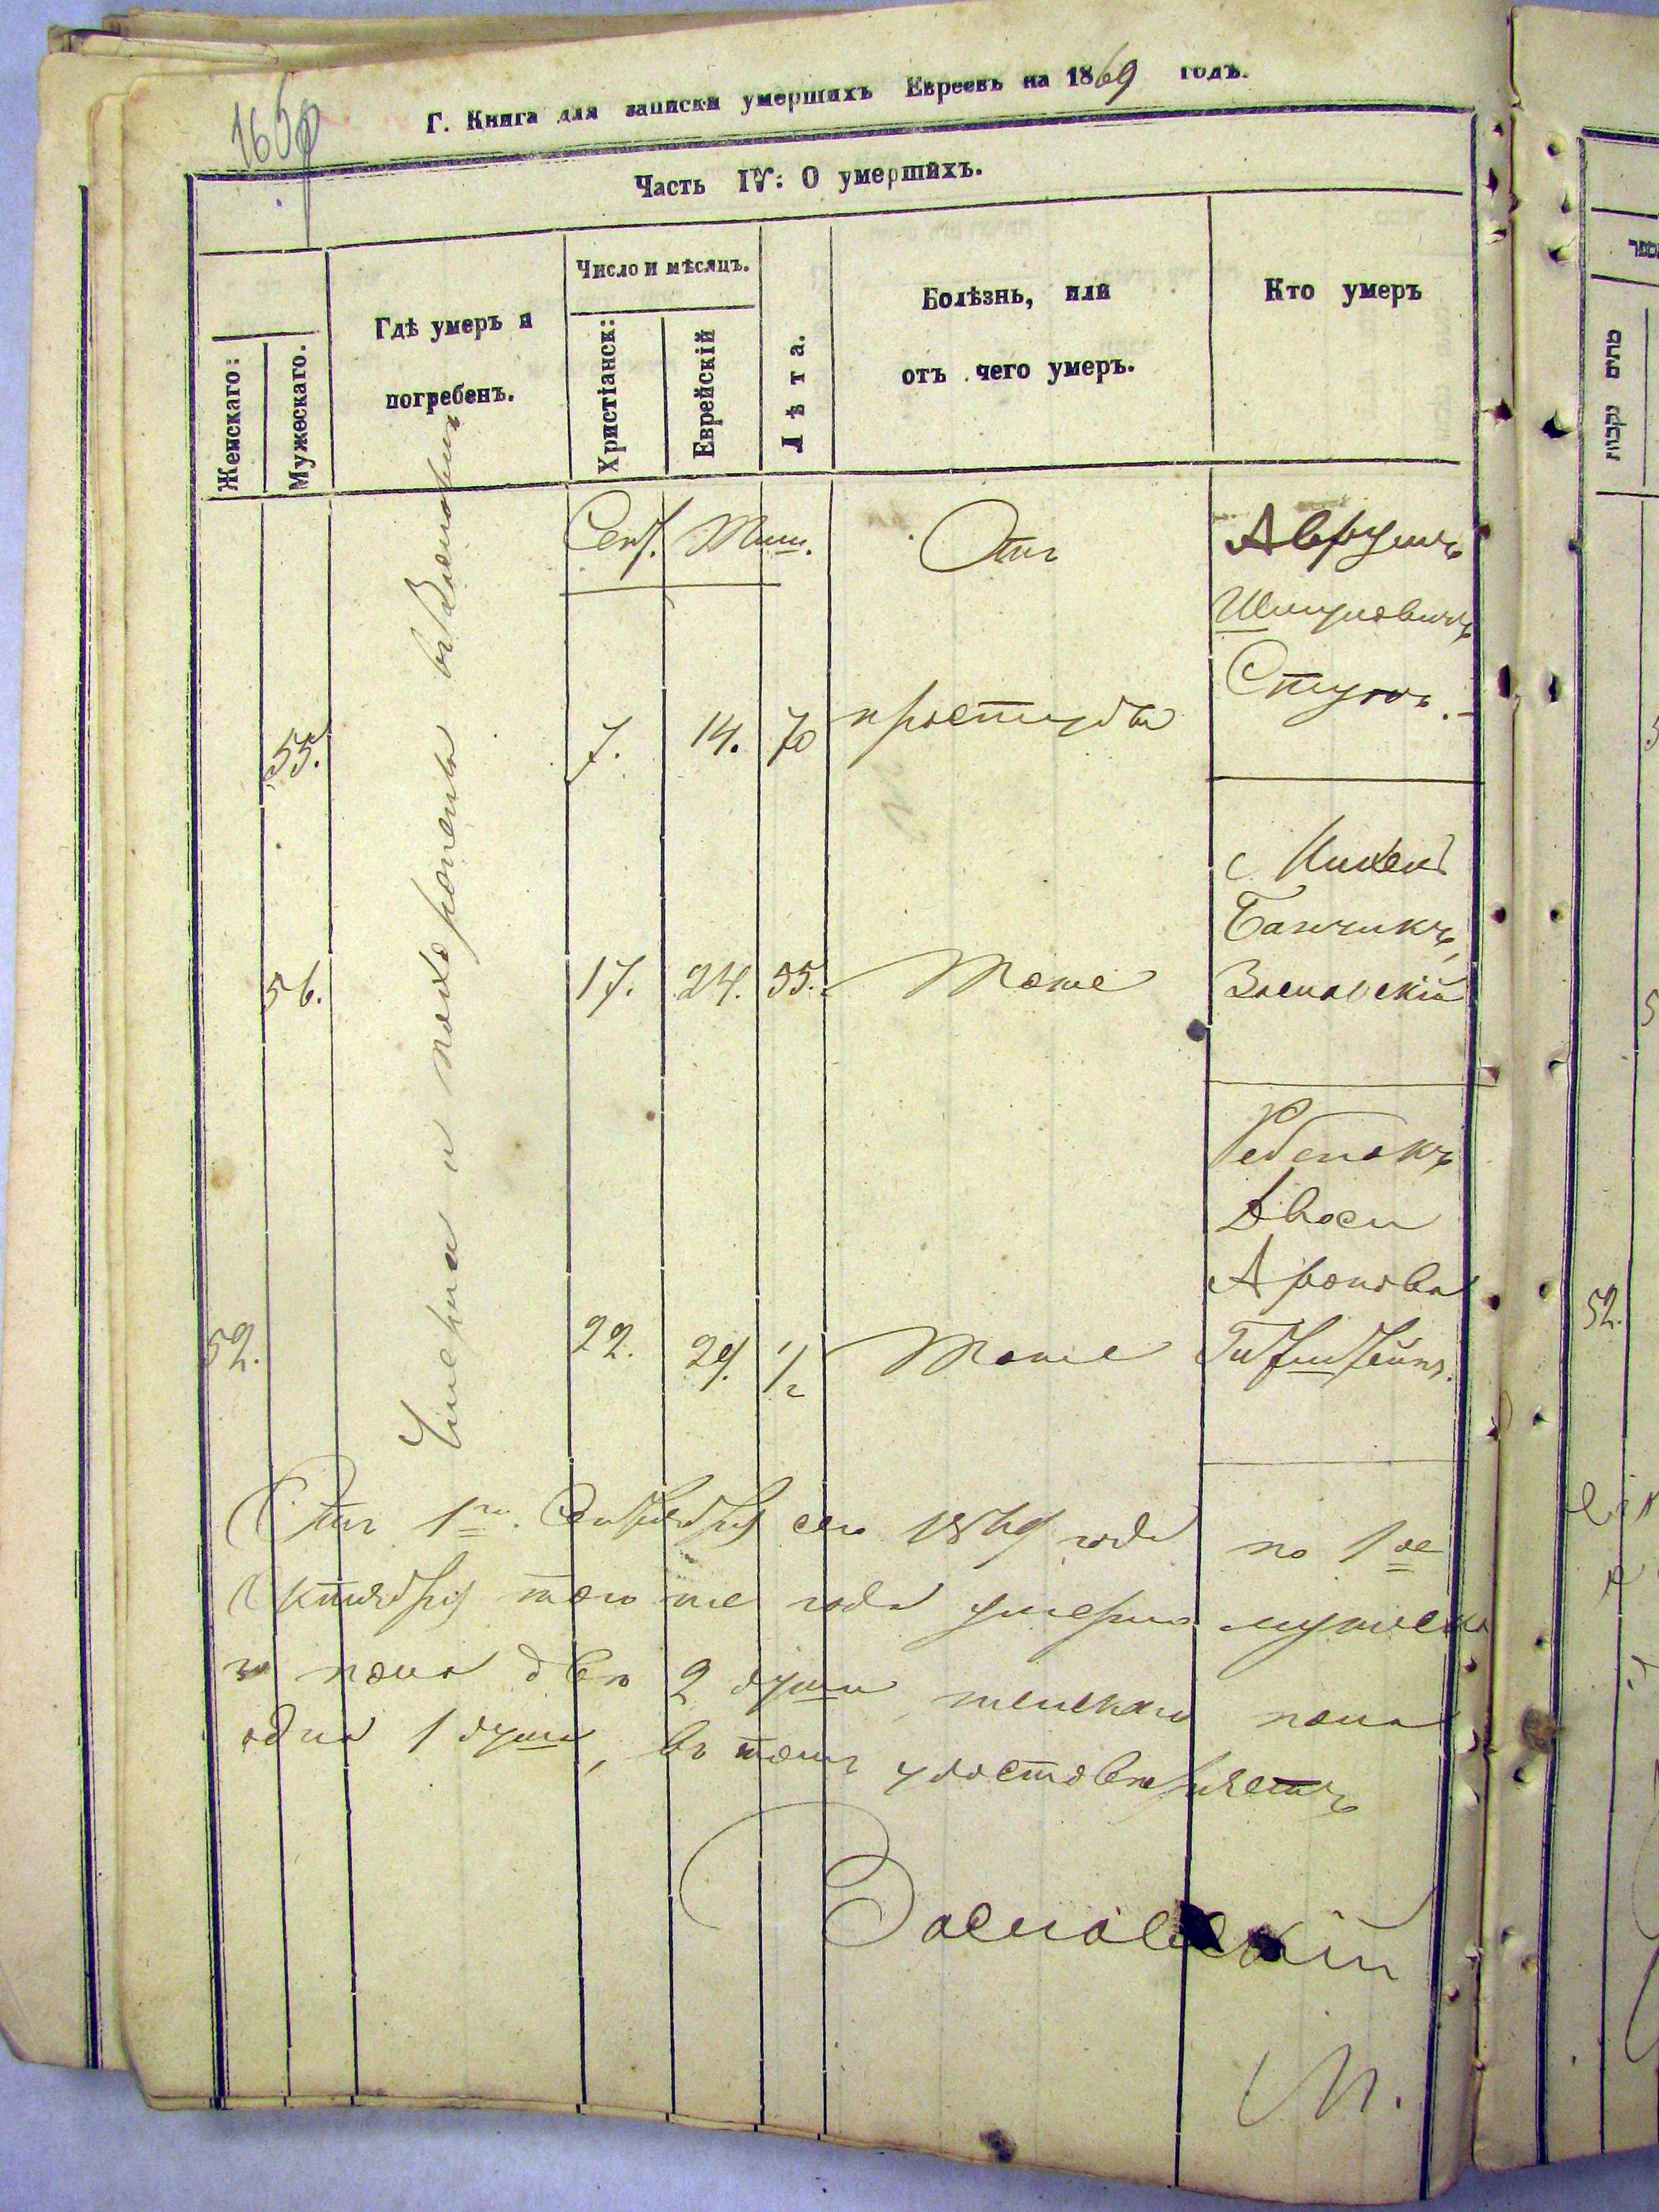 Г. Книга для записки умершихъ Евреевъ на 1869 годъ.
Часть IV: О умершихъ.
Женскаго:
Мужескаго.
Гдѣ умеръ и
погребенъ.
Число и мѣсяцъ.
Христіанск:
Еврейскій
Лѣта.
Болѣзнь, или
отъ чего умеръ.
Кто умеръ
и похоронены
Сент. Тиш.
Отъ
Аврумъ
Шмулевичъ
55. 7. 14. 70 простуды
56. 17. 24. 55. Тоже
Банчикъ
Заславскій
Ребенокъ
Двоси
Аронова
52. 22. 29. 1/2 Тоже
Отъ 1го Сентября сего 1869 года по 1ое
Октября того же года умерло мужеска
го пола двѣ 2 души женскаго пола
одна 1 душа, въ томъ удостовѣряетъ
Заславскій
М.
מתים
נקבות
52.